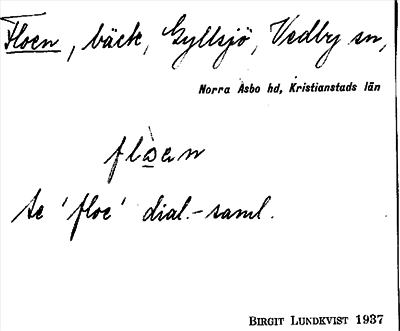 Floen, bäck, Gyllsjö, Vedby sn,
Norra Åsbo hd, Kristianstads län
Se 'floe' dial.-saml.
BIRGIT LUNDKVIST 1937